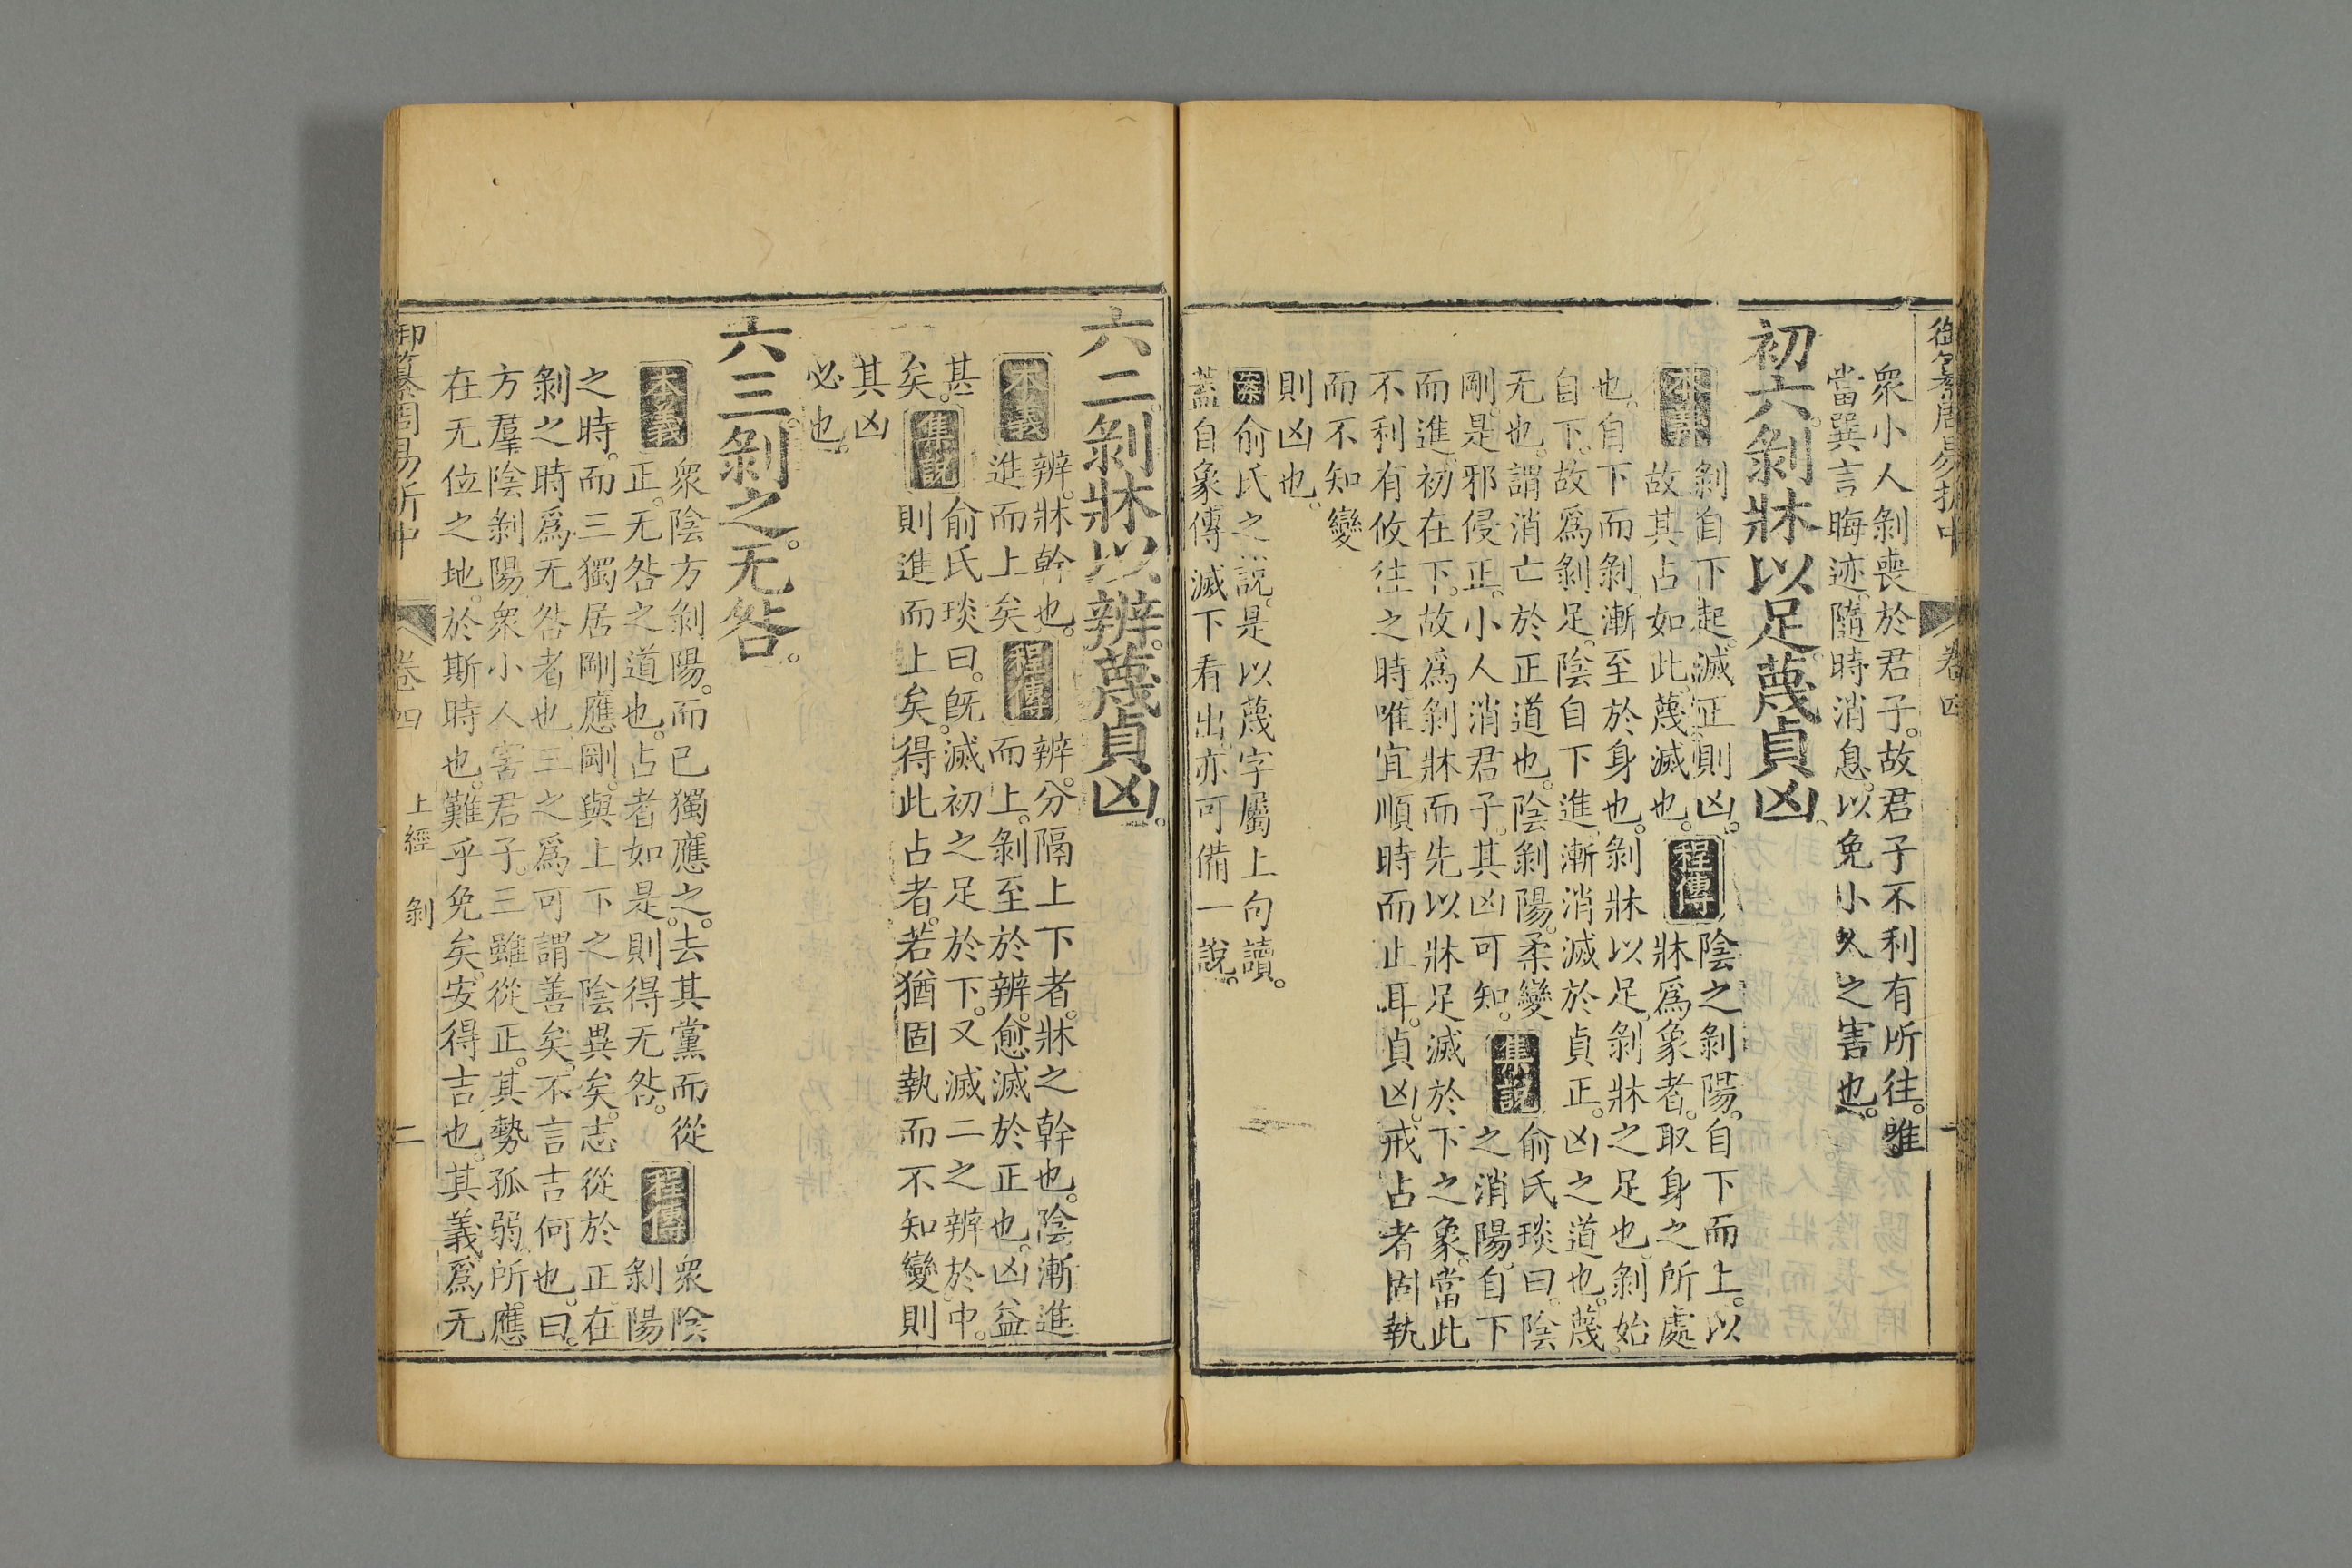 御纂周易折中 卷四 一
衆小人剝喪於君子。故君子不利有所往。唯
當巽言晦迹。隨時消息。以免小人之害也。
初六。剝牀以足。蔑貞凶。
本義 剝自下起。滅正則凶。
故其占如此。蔑滅也。
程傳 陰之剝陽。自下而上。以
牀爲象者。取身之所處
也。自下而剝。漸至於身也。剝牀以足。剝牀之足也。剝始
自下。故爲剝足。陰自下進。漸消滅於貞正。凶之道也。蔑。
无也。謂消亡於正道也。陰剝陽。柔變
剛。是邪侵正。小人消君子。其凶可知。
集說 俞氏琰曰。陰
之消陽。自下
而進。初在下。故爲剝牀而先以牀足滅於下之象。當此
不利有攸往之時。唯宜順時而止耳。貞凶。戒占者固執
而不知變
則凶也。
案 俞氏之說。是以蔑字屬上句讀。
蓋自象傳滅下看出。亦可備一說。
六二。剝牀以辨。蔑貞凶。
本義 辨。牀幹也。
進而上矣
程傳 辨。分隔上下者。牀之幹也。陰漸進
而上。剝至於辨。愈滅於正也。凶益
甚
矣。
集說 俞氏琰曰。旣滅初之足於下。又滅二之辨於中。
則進而上矣。得此占者。若猶固執而不知變。則
其凶
必也。
六三。剝之。无咎。
本義 衆陰方剝陽。而已獨應之。去其黨而從
正。无咎之道也。占者如是。則得无咎。
程傳 衆陰
剝陽
之時。而三獨居剛應剛。與上下之陰異矣。志從於正。在
剝之時。爲无咎者也。三之爲可謂善矣。不言吉何也。曰。
方羣陰剝陽。衆小人害君子。三雖從正。其勢孤弱。所應
在无位之地。於斯時也。難乎免矣。安得吉也。其義爲无
御纂周易折中 卷四 上經 剝 二